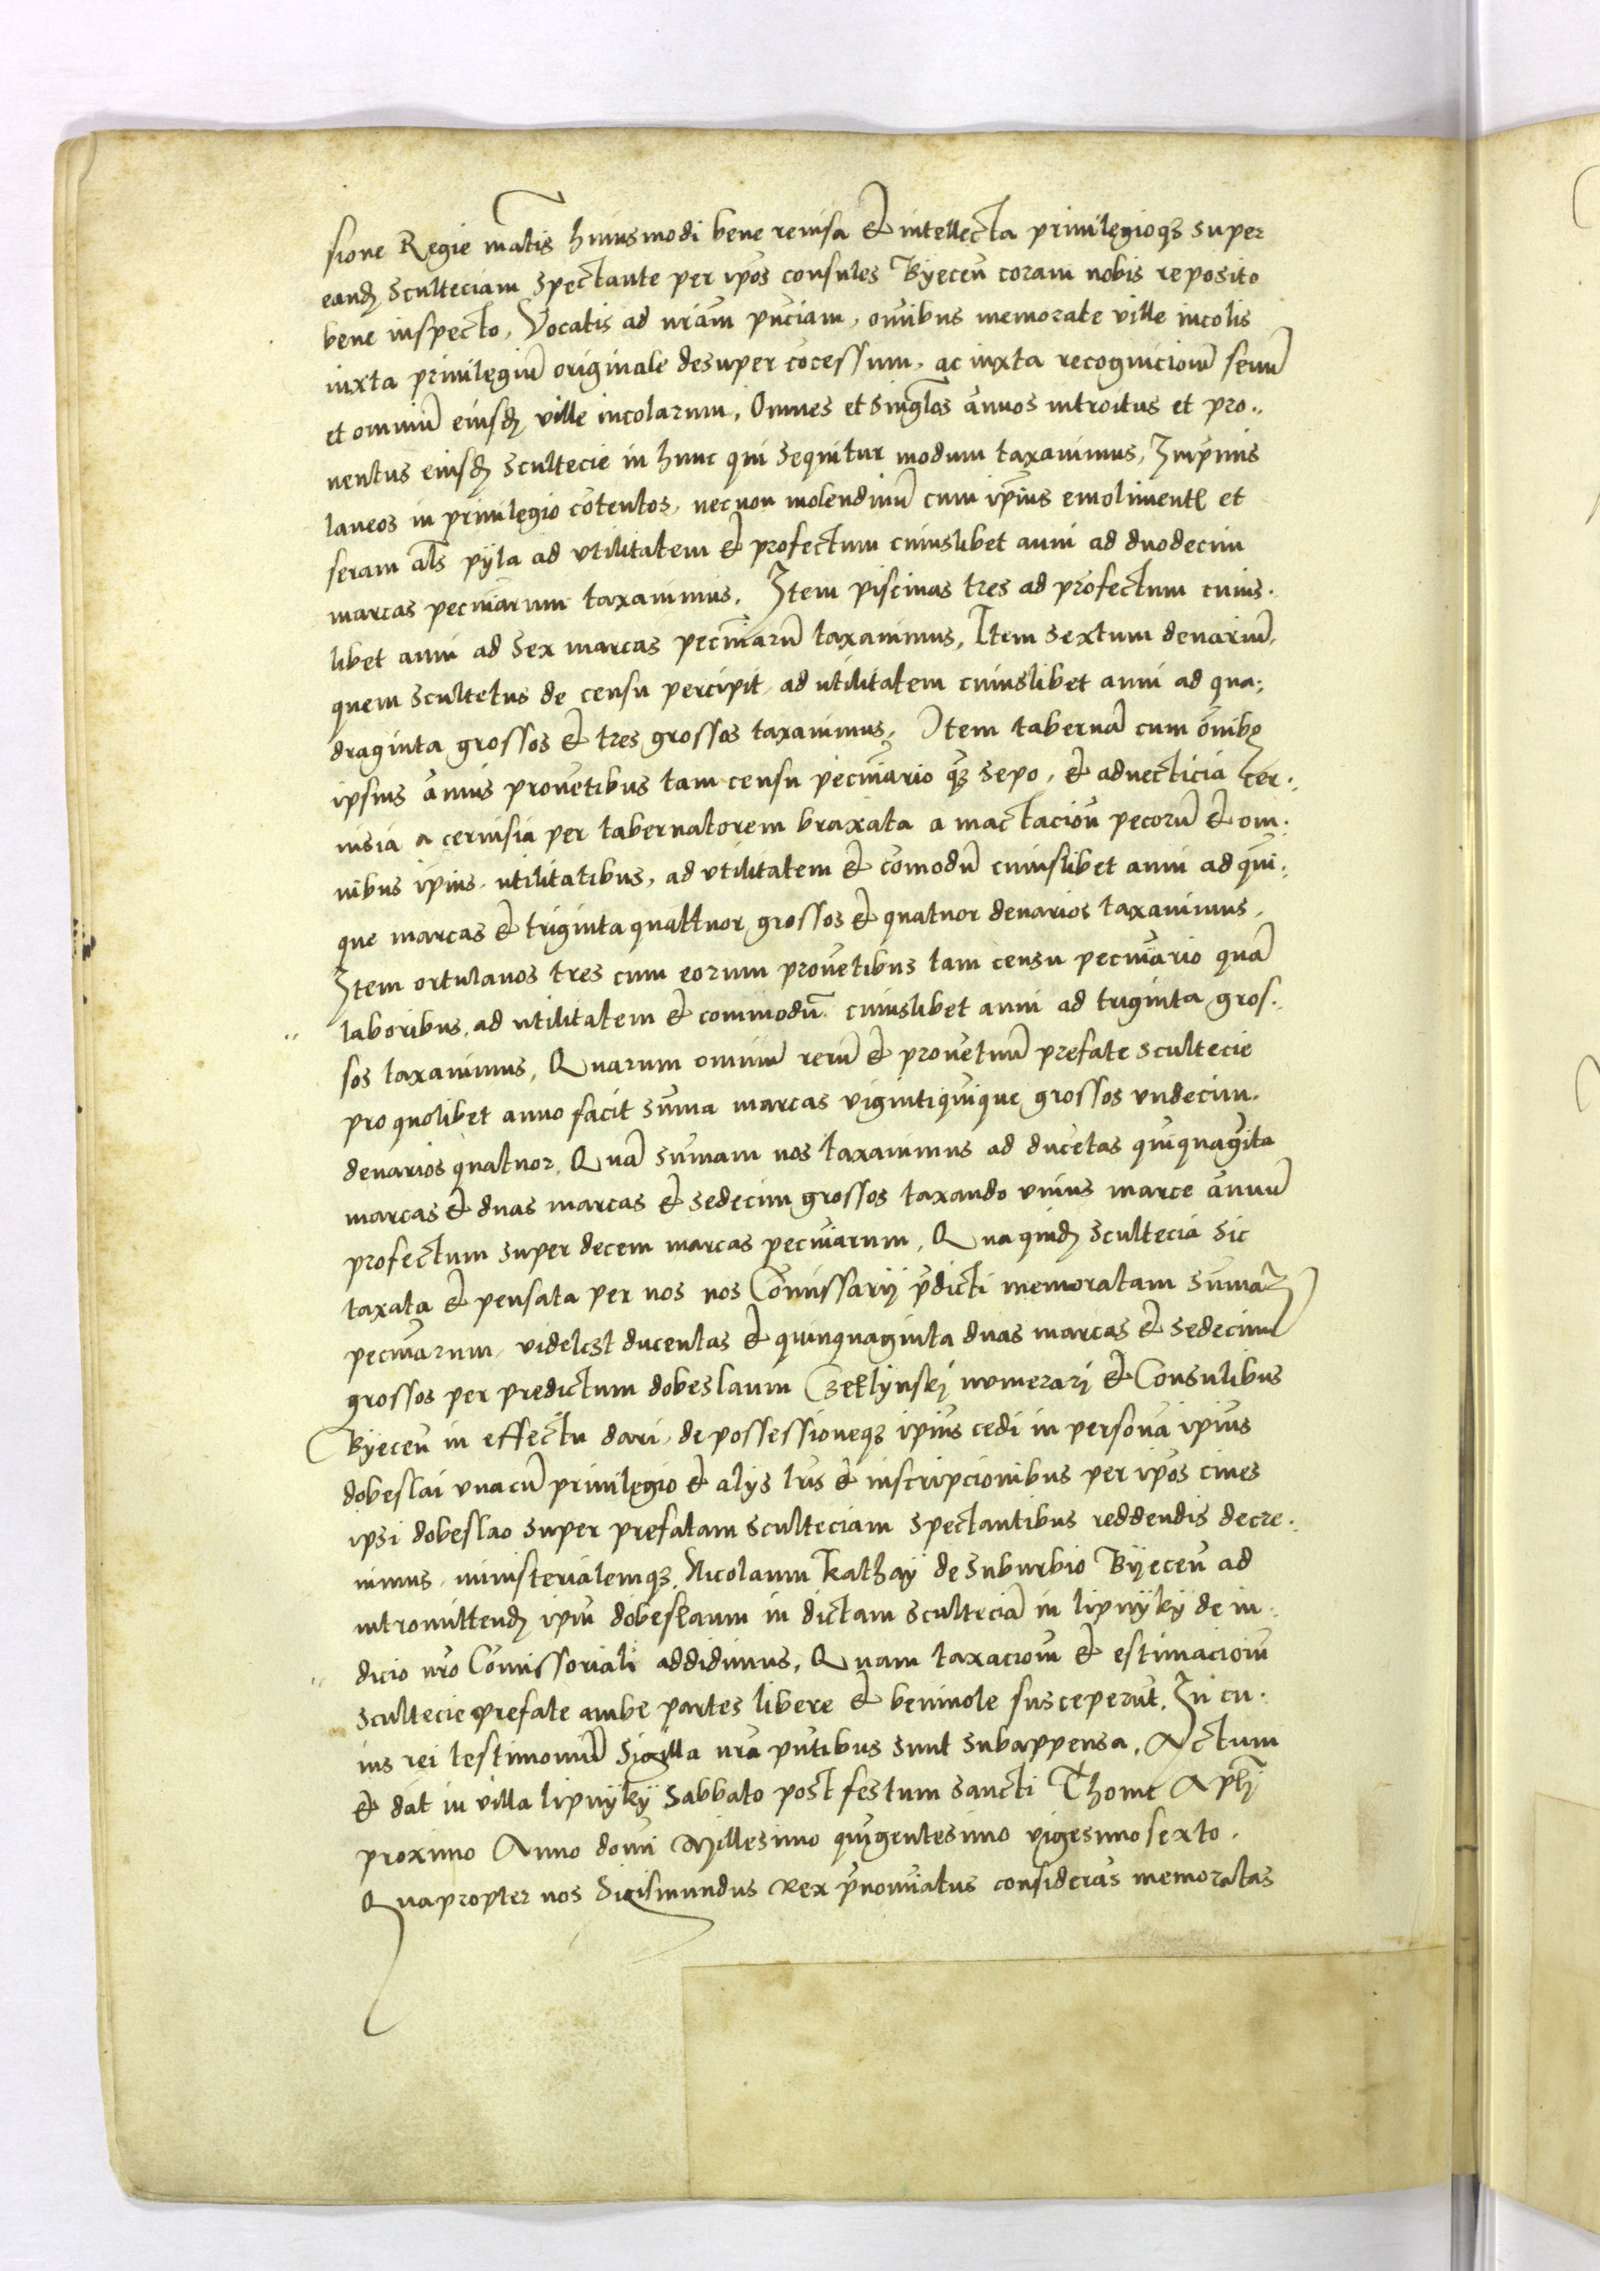 sione Regie mātis huiusmodi bene reuisa et intellecta priuilęgioqȝ super
eandꝫ sculteciam spectante per ip̄os consules Byecen̄ coram nobis reposito
bene inspecto, Vocatis ad nr̄am pn̄ciam, om̄ibus memorate ville incolis
iuxta priuilęgiū originale desuper cōcessum, ac iuxta recognicionē seniū
et omniū eiusdꝫ ville incolarum, Omnes et singl̄os an̄uos introitus et pro..
uentus eiusdꝫ scultecie in hunc qui sequitur modum taxauimus, Inp̄mis
laneos in priuilęgio cōtentos, necnon molendinū cum ip̄ius emolimentꝭ et
seram al̄s pyla ad vtilitatem et profectum cuiuslibet anni ad duodecim
marcas pecuniarum taxauimus, Item piscinas tres ad profectum cuius.
libet anni ad sex marcas pecuniarū taxauimus, Item sextum denariū,
quem scultetus de censu percipit, ad utilitatem cuiuslibet anni ad qua:
draginta grossos et tres grossos taxauimus, Item tabernā cum ōnibꝯ
ipsius an̄uis prouētibus tam censu pecūiario qȝ sepo, et aduecticia cer..
uisia a ceruisia per tabernatorem braxata a mactaciōn pecorū et om.
nibus ip̄ius utilitatibus, ad vtilitatem et cōmodū cuiuslibet anni ad quī:
que marcas et triginta quattuor grossos et quatuor denarios taxauimus,
Item ortulanos tres cum eorum prouētibus tam censu pecūiario quā
laboribus, ad utilitatem et commodū cuiuslibet anni ad triginta gros..
sos taxauimus, Quarum omniū rerū et prouētuū prefate scultecie
pro quolibet anno facit sūma marcas vigintiquīque grossos vndecim.
denarios quatuor, Quā sūmam nos taxauimus ad ducētas quīquagīta
marcas et duas marcas et sedecim grossos taxando vnius marce an̄uū
profectum super decem marcas pecūiarum, Qua quidꝫ scultecia sic
taxata et pensata per nos nos Cōmissarij p̄dicti memoratam sūmaꝫ
pecūiarum, videlcꝫt ducentas et quinquaginta duas marcas et sedecim
grossos per predictum dobeslaum Czeklynskj numerarj et Consulibus
Byecen̄ in effectu dari, de possessioneqȝ ip̄ius cedi in persona ip̄ius
dobeslai vnacū priuilęgio et alys lr̄is et inscripcionibus per ip̄os ciues
ipsi dobeslao super prefatam sculteciam spectantibus reddendis decre..
uimus, ministerialemqȝ, Nicolaum Kathay de suburbio Byecen̄ ad
intromittendꝫ ip̄m dobeslaum in dictam scultecia in lipnyky de iu.
dicio nr̄o Cōmissoriali addidimus, Quam taxaciōn et estimaciōn
scultecie prefate ambe partes libere et beniuole susceperūt, In cu.
ius rei testimoniū Sigilla nr̄a pn̄tibus sunt subappensa, Actum
et dāt in villa lipnyky Sabbato post festum sancti Thome Apl̄i
proximo Anno domi Millesimo quīgentesimo vigesimosexto.
Quapropter nos Sigismundus Rex p̄nomīatus considerās memoratas